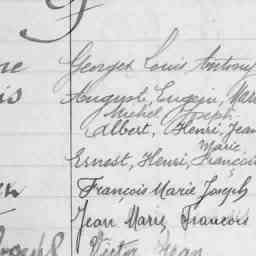 Georges Louis Antony
Auguste, Eugène, Marie
Michel Joseph
Albert, Henri, Jean
Marie,
Ernest, Henri, François
François Marie Joseph
Jean Marie François
Joseph Victor Jean